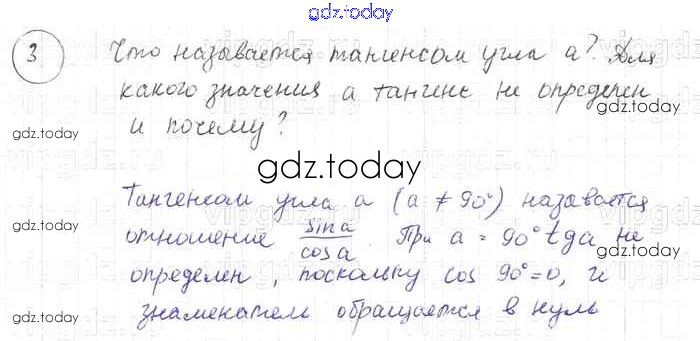 gdz.today
3 Что называется тангенсом угла a? Для
какого значения a тангенс не определен
gdz.today
и почему?
gdz.today
gdz.today
Тангенсом угла a (a ≠ 90°) называется
gdz.today
отношение sina/cosa. При a = 90° tga не
определен, поскольку cos 90°=0, и
gdz.today
знаменатель обращается в нуль
gdz.today